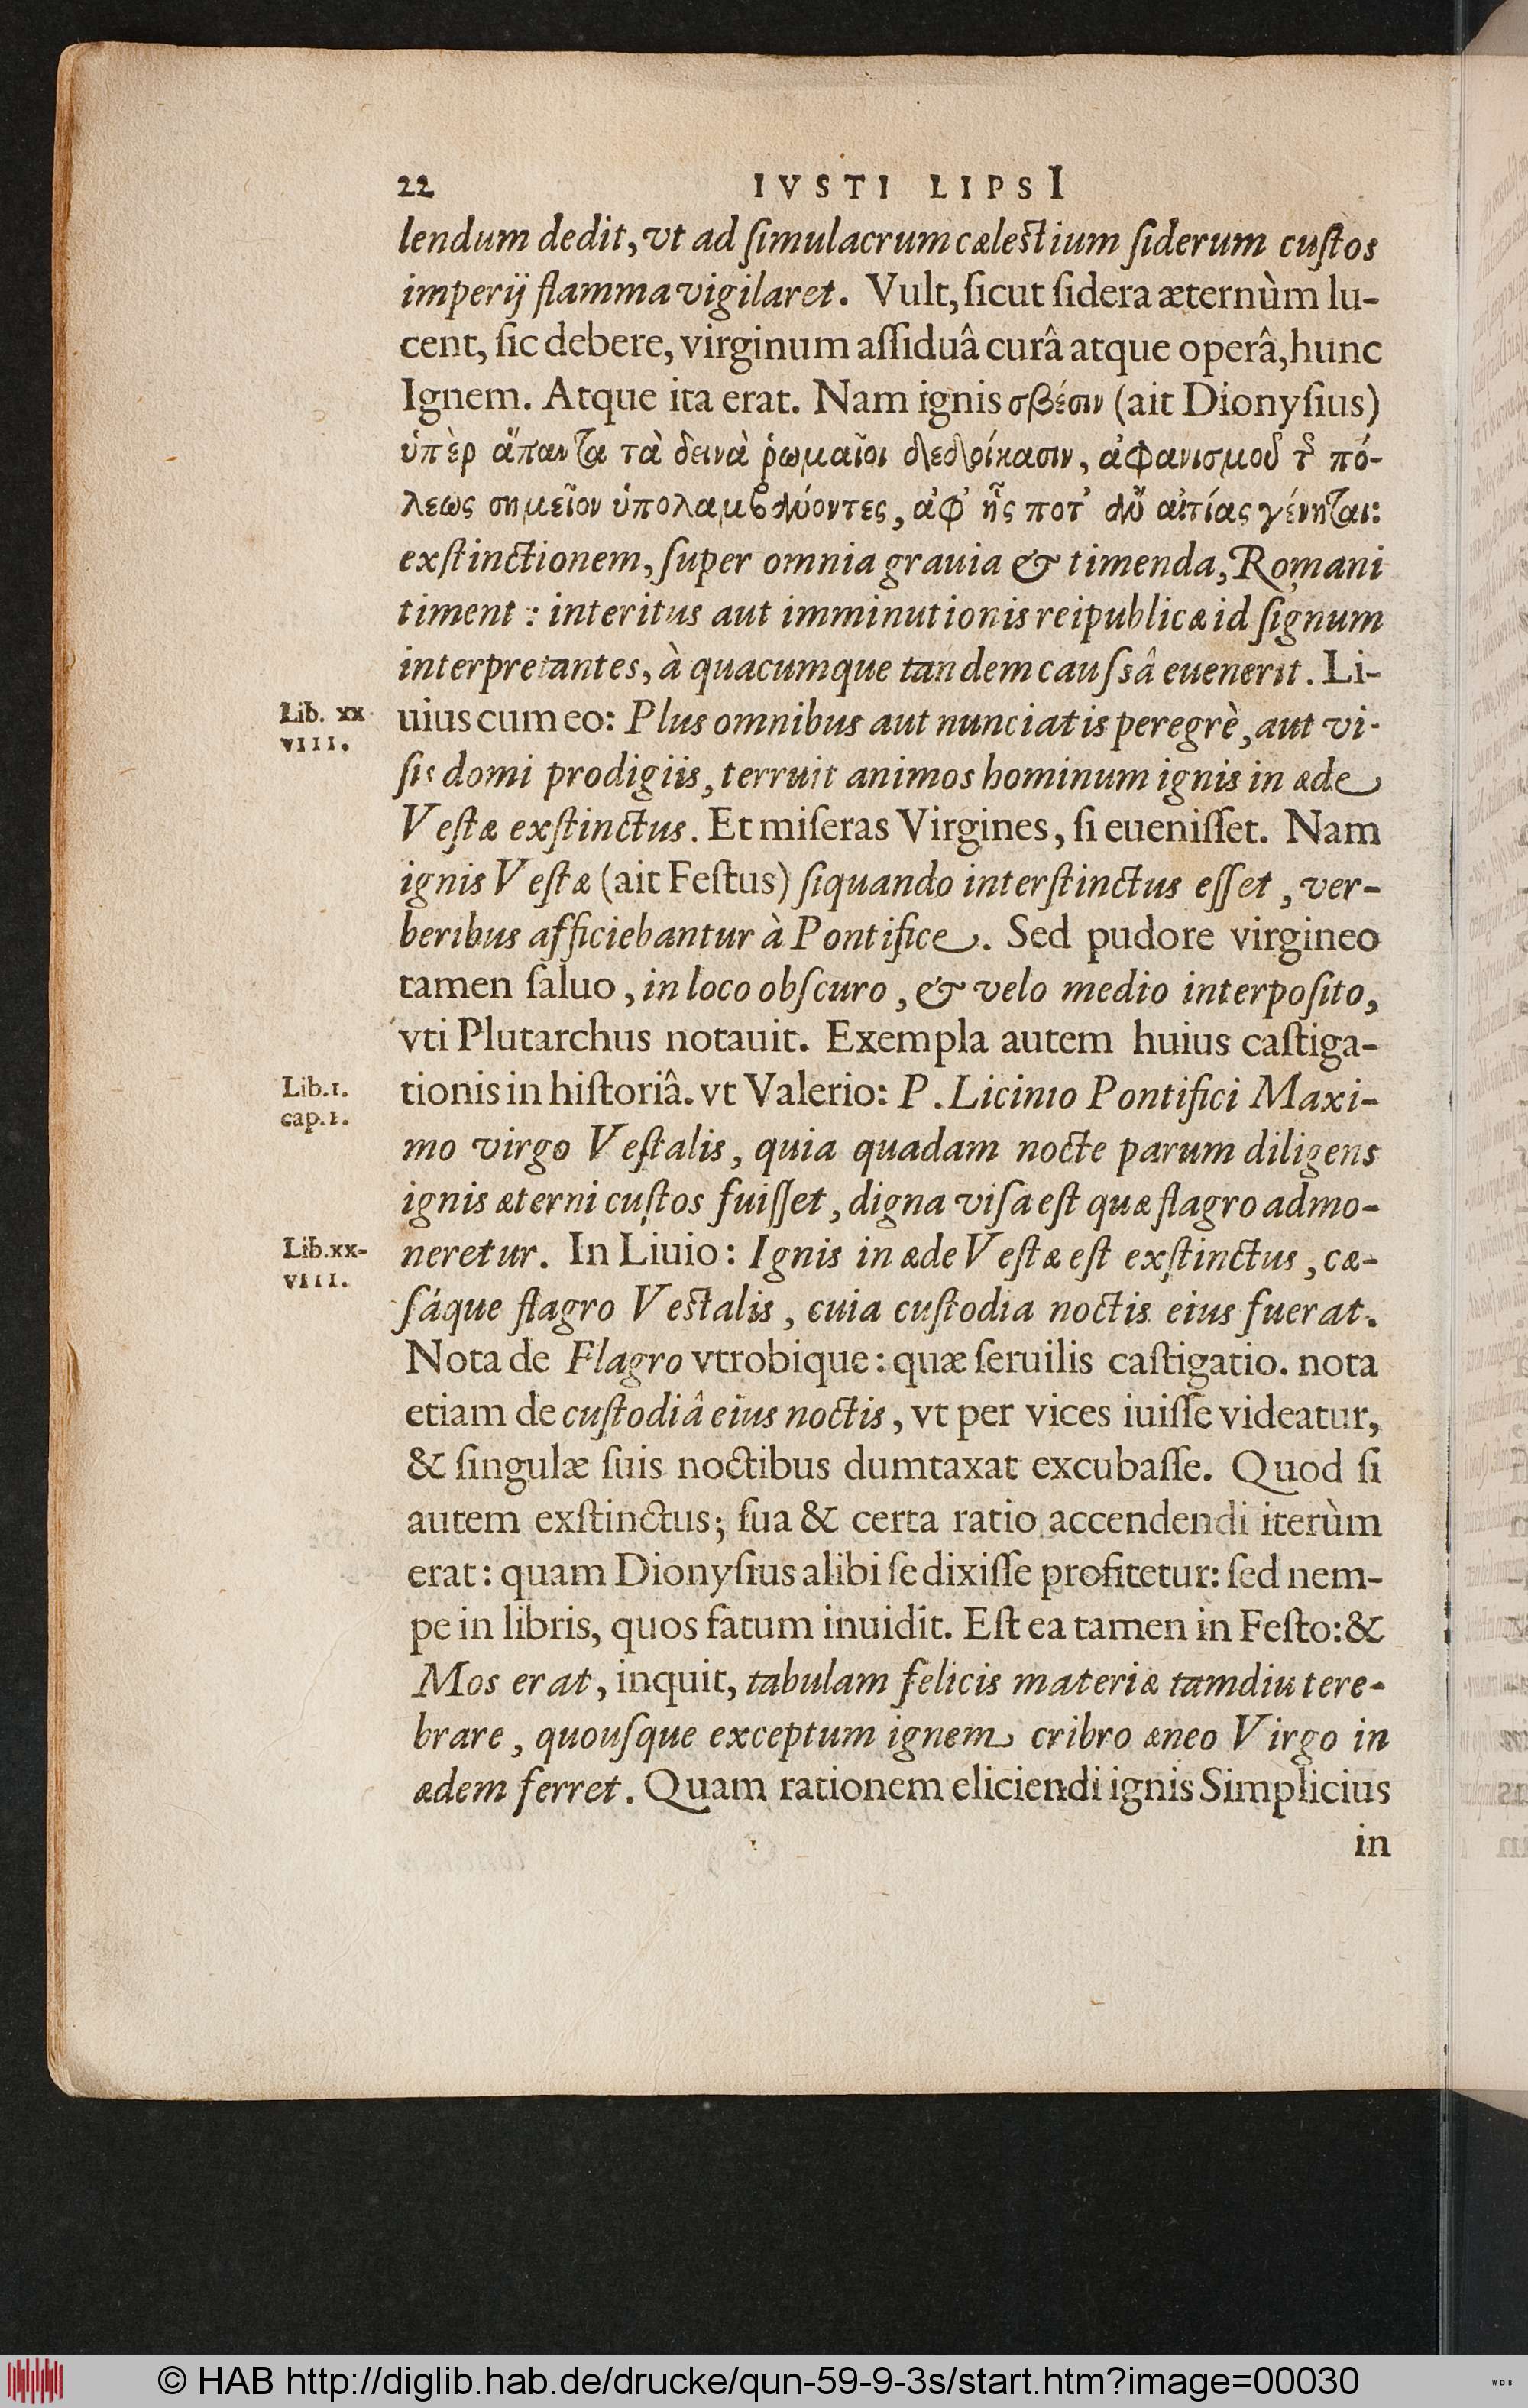 22 IVSTI LIPSI
lendum dedit, vt ad ſimulacrum cælestium ſiderum cuſtos
imperij flamma vigilaret. Vult, ſicut ſidera æternùm lu-
cent, ſic debere, virginum aſſiduâ curâ atque operâ, hunc
Ignem. Atque ita erat. Nam ignis σβέσιν (ait Dionyſius)
ὑπὲρ ἅπαντα τὰ δεινὰ ῥωμαῖοι δεδοίκασιν, ἀφανισμοῦ τῆς πό-
λεως σημεῖον ὑπολαμβάνοντες, ἀφ' ἧς ποτ' ἂν αἰτίας γένηται:
exſtinctionem, ſuper omnia grauia & timenda, Romani
timent: interitus aut imminutionis reipublicæ id ſignum
interpretantes, à quacumque tandem cauſsâ euenerit. Li-
Lib. xx
VIII.
uius cum eo: Plus omnibus aut nunciatis peregrè, aut vi-
ſis domi prodigiis, terruit animos hominum ignis in æde
Veſtæ exſtinctus. Et miſeras Virgines, ſi eueniſſet. Nam
ignis Veſtæ (ait Feſtus) ſiquando interſtinctus eſſet, ver-
beribus afficiebantur à Pontifice. Sed pudore virgineo
tamen ſaluo, in loco obſcuro, & velo medio interpoſito,
vti Plutarchus notauit. Exempla autem huius caſtiga-
Lib. I.
cap. I.
tionis in hiſtoriâ. vt Valerio: P. Licinio Pontifici Maxi-
mo virgo Veſtalis, quia quadam nocte parum diligens
ignis æterni cuſtos fuiſſet, digna viſa eſt quæ flagro admo-
Lib. xx-
VIII.
neretur. In Liuio: Ignis in æde Veſtæ eſt exſtinctus, cæ-
ſáque flagro Vestalis, cuia cuſtodia noctis eius fuerat.
Nota de Flagro vtrobique: quæ ſeruilis caſtigatio. nota
etiam de cuſtodiâ eius noctis, vt per vices iuiſſe videatur,
& ſingulæ ſuis noctibus dumtaxat excubaſſe. Quod ſi
autem exſtinctus; ſua & certa ratio accendendi iterùm
erat: quam Dionyſius alibi ſe dixiſſe profitetur: ſed nem-
pe in libris, quos fatum inuidit. Eſt ea tamen in Feſto: &
Mos erat, inquit, tabulam felicis materiæ tamdiu tere-
brare, quouſque exceptum ignem cribro æneo Virgo in
ædem ferret. Quam rationem eliciendi ignis Simplicius
in
© HAB http://diglib.hab.de/drucke/qun-59-9-3s/start.htm?image=00030
WDB